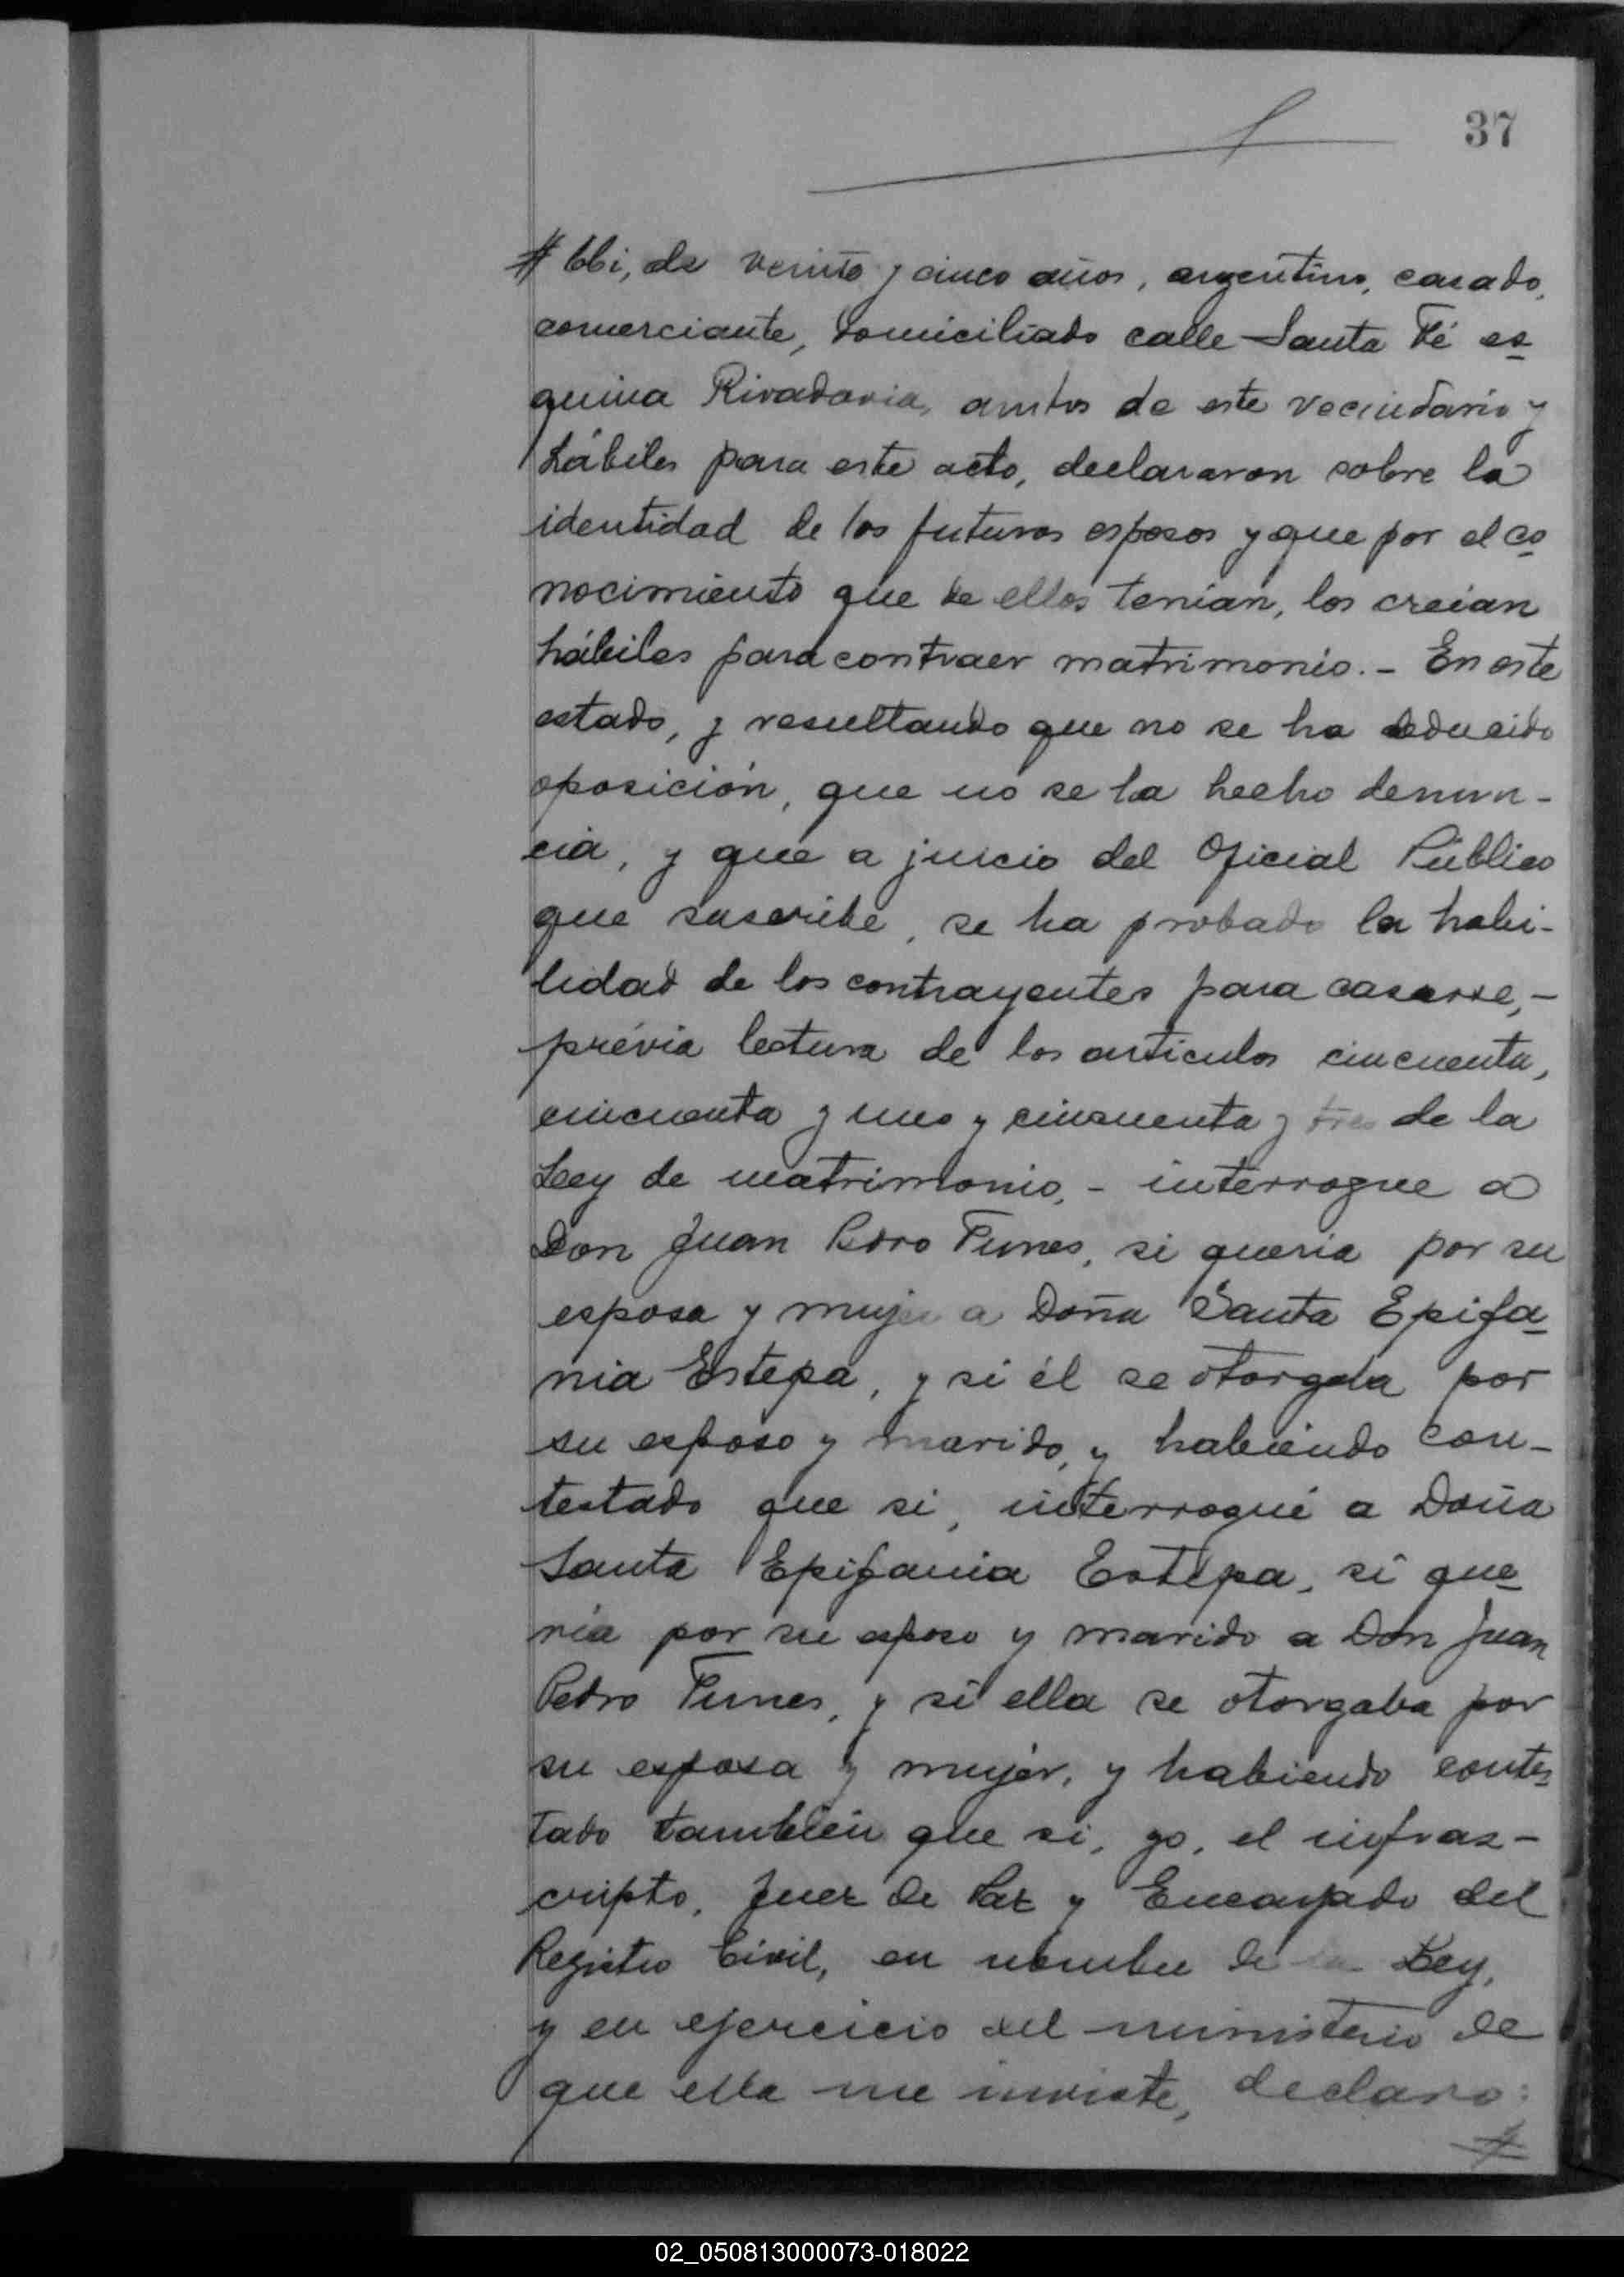 37
# bbi, de veinte y cinco años, argentino, casado,
comerciante, domiciliado calle Santa Fé es
quina Rivadavia, ambos de este vecindario y
hábiles para este acto, declararon sobre la
identidad de los futuros esposos y que por el co
nocimiento que de ellos tenian, los creian
hábiles para contraer matrimonio. - En este
estado, y resultando que no se ha deducido
oposición, que no se ha hecho denun-
cia, y que a juicio del Oficial Público
que suscribe, se ha probado la habi-
lidad de los contrayentes para casarse, -
prévia lectura de los artículos cincuenta,
cincuenta y uno y cincuenta y tres de la
Ley de matrimonio, - interrogue a
Don Juan Pedro Funes, si queria por su
esposa y mujer a Doña Santa Epifa
nia Estepa, y si él se otorgaba por
su esposo y marido, y habiendo con-
testado que si, interrogué a Doña
Santa Epifania Estepa, si que
ria por su esposo y marido a Don Juan
Pedro Funes, y si ella se otorgaba por
su esposa y mujer, y habiendo contes
tado también que si, yo, el infras-
cripto, Juez de Paz y Encargado del
Registro Civil, en nombre de la Ley,
y en ejercicio del ministerio de
que ella me inviste, declaro:
#
02_050813000073-018022